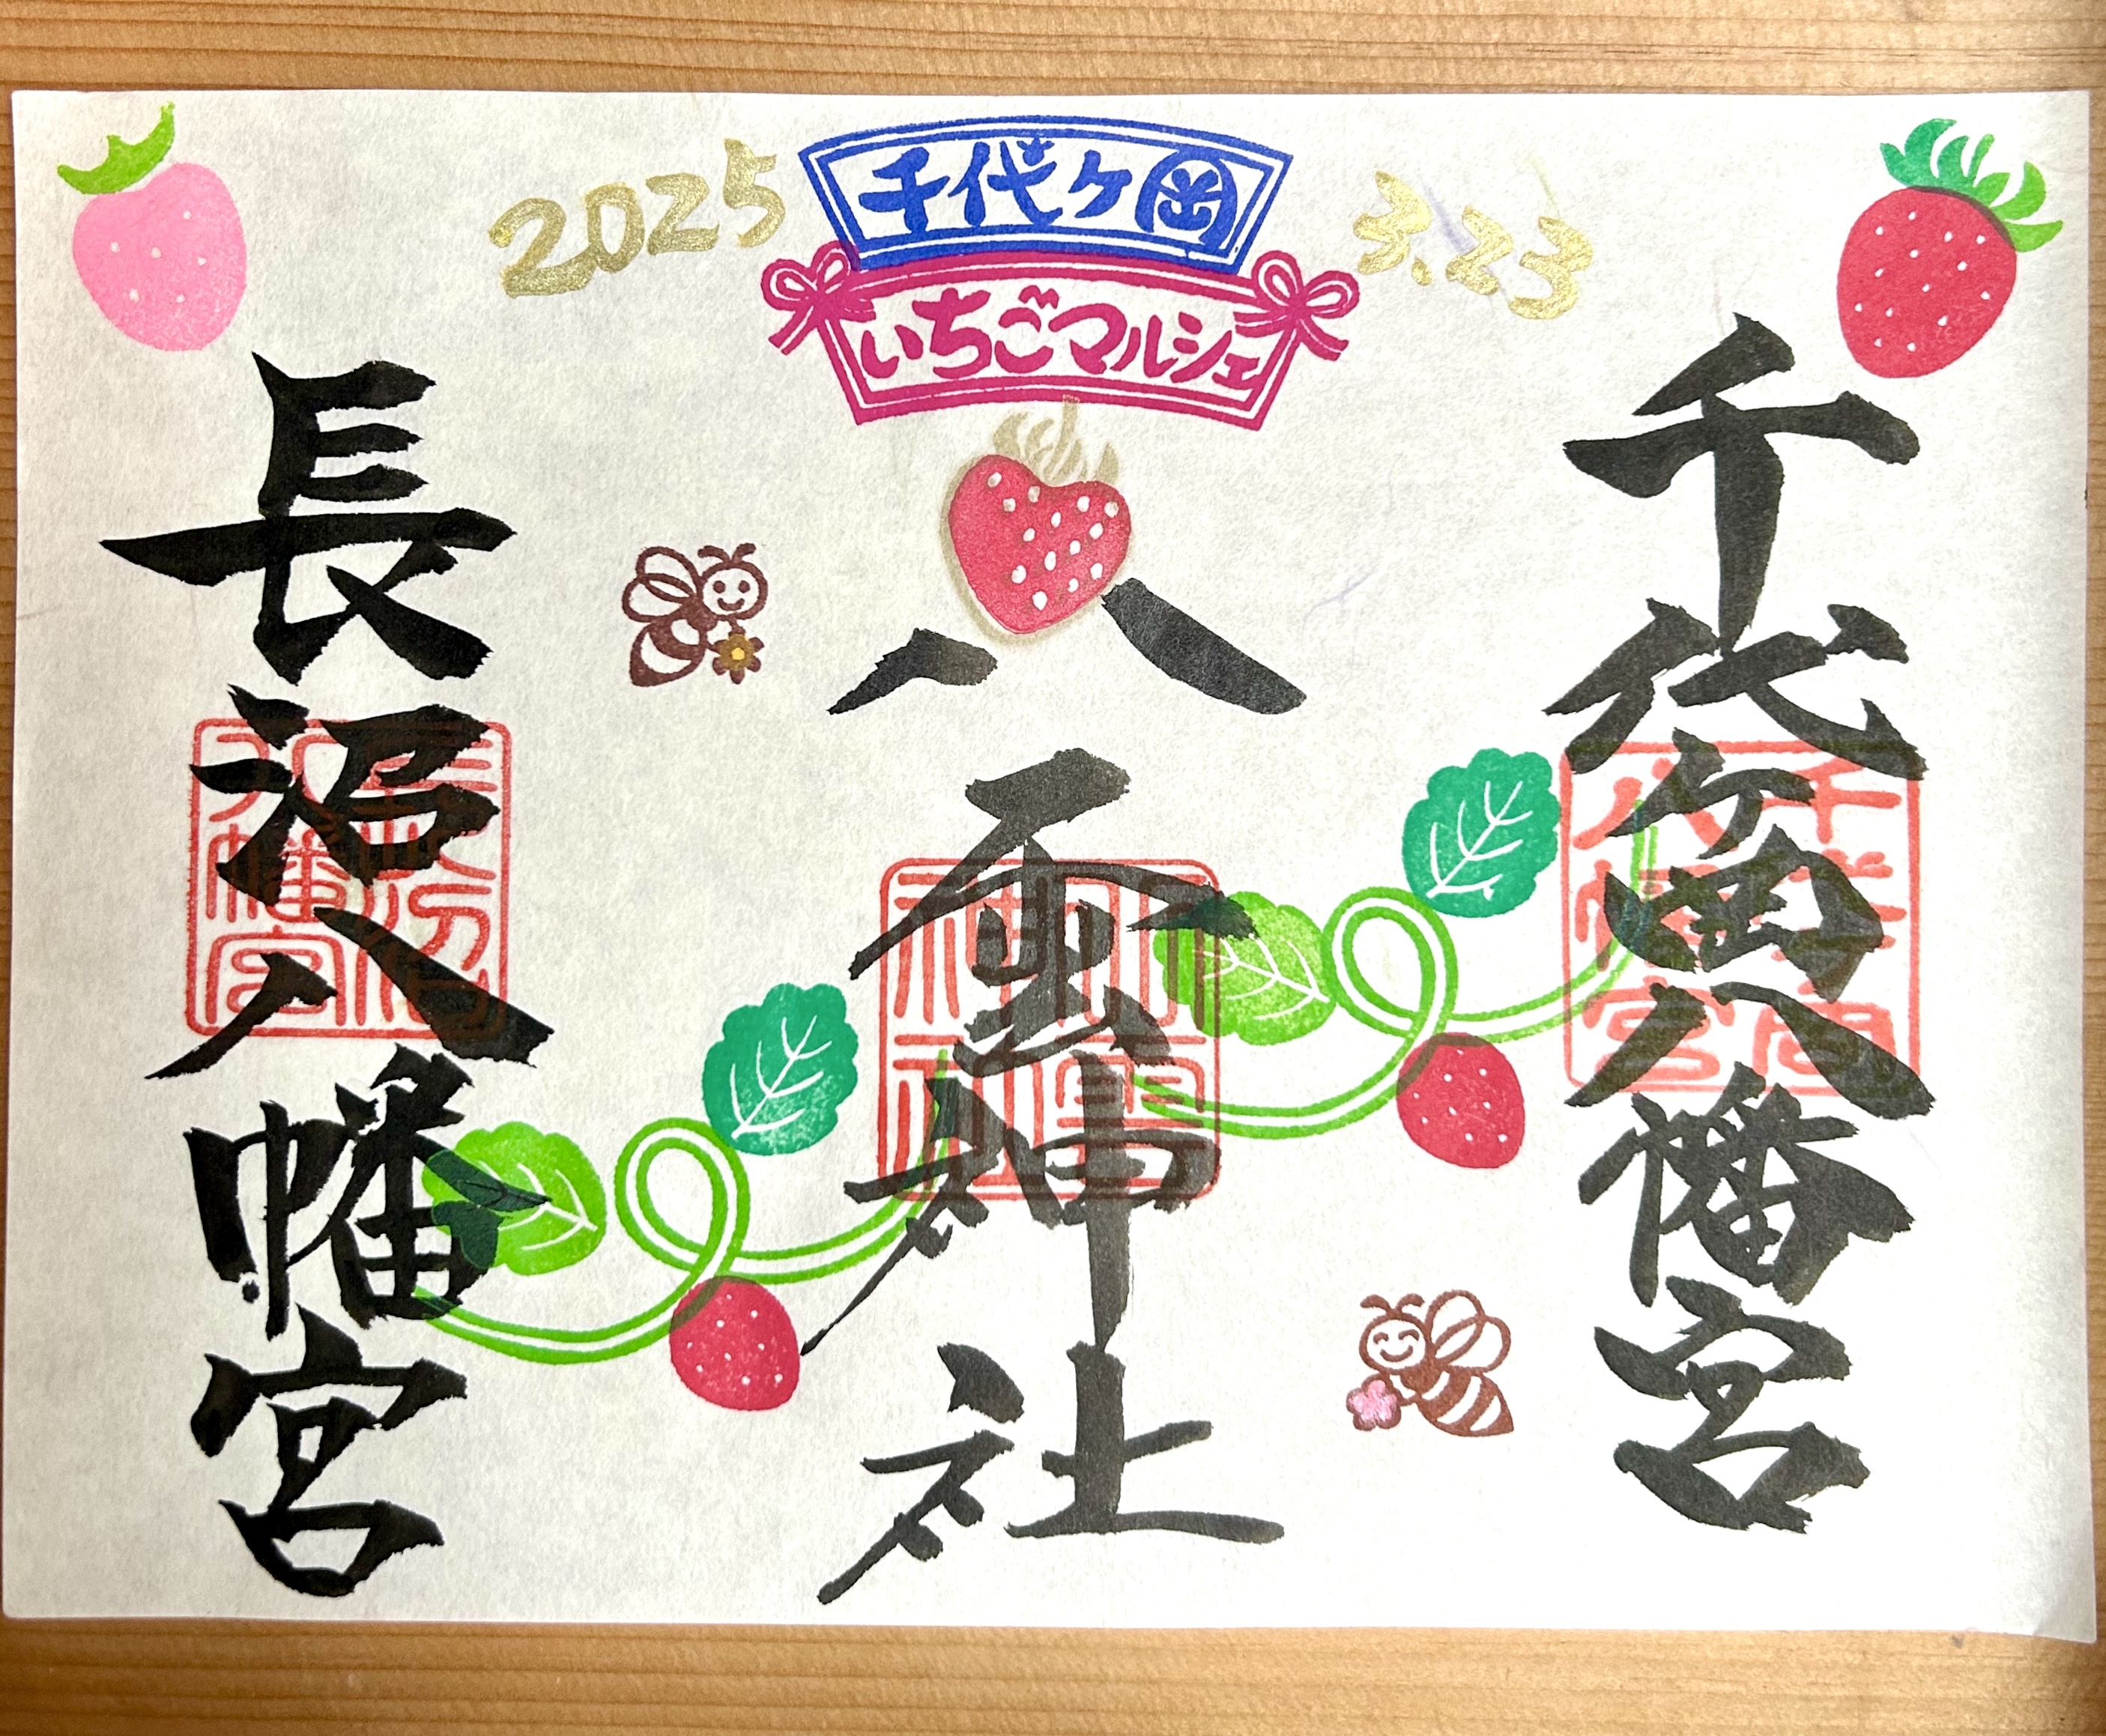 2025
千代ヶ岡
3.23
いちごマルシェ
千代ヶ岡八幡宮
八雲神社
長沼八幡宮